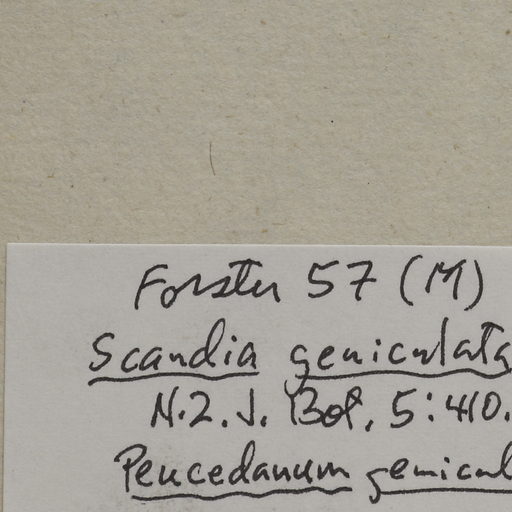 Forster 57 (M)
Scandia geniculata
N.Z.J. Bot. 5:410.
Peucedanum genicul